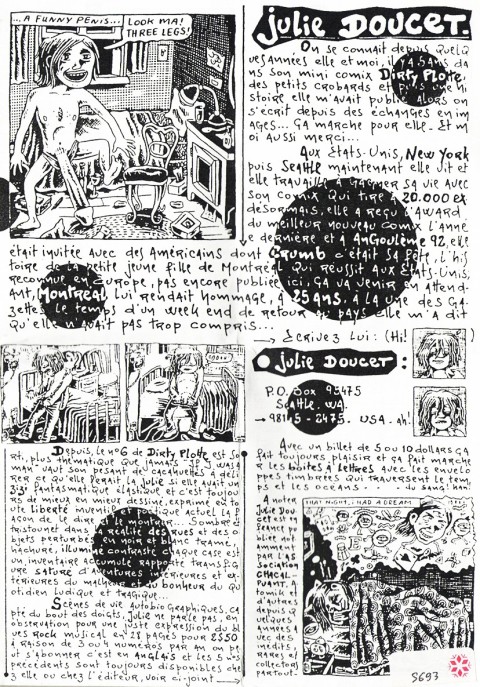 ...A FUNNY PENIS...
LOOK MA!
THREE LEGS!
JULIE DOUCET.
On se connaît depuis quelq
ues années elle et moi, il y a 5 ans da
ns son mini comix Dirty Plotte,
des petits crobards et puis une hi
stoire elle m'avait publié alors on
s'écrit depuis des échanges en im
ages... ça marche pour elle. Et m
oi aussi merci...
Aux Etats-Unis, New York
puis Seattle maintenant elle vit et
elle travaille à gagner sa vie avec
son comix qui tire à 20.000 ex
désormais, elle a reçu l'award
du meilleur nouveau comix l'anné
e dernière et à Angoulême 92, elle
était invitée avec des Américains dont Crumb c'était sa fête, l'his
toire de la petite jeune fille de Montréal qui réussit aux Etats-Unis,
reconnue en Europe, pas encore publiée ici, ça va venir en attend-
ant, Montréal lui rendait hommage, à 25 ans, à la une des ga
zettes le temps d'un week end de retour au pays elle m'a dit
qu'elle n'avait pas trop compris...
→ Ecrivez lui: (Hi!)
JULIE DOUCET:
P.O. Box 95475
Seattle. WA
→ 98145-2475. USA. ah!
Depuis, le n°6 de Dirty Plotte est so
rti, plus thématique que jamais
man vaut son pesant de cacahuètes à déli
rer ce qu'elle ferait la Julie si elle avait un
fantasmatique élastique et c'est toujou
rs de mieux en mieux dessiné, exprimé en to
ute liberté
açon de le dire et le montrer... Sombre et
tristounet dans la réalité des rues et des o
bjets perturbés
en noir et blanc tramé,
hachuré, illuminé contrasté chaque case est
un inventaire accumulé rapporté transfig
uré saturé d'aventures intérieures et ex-
térieures du malheur et du bonheur du qu
otidien ludique et tragique...
Scènes de vie autobiographiques, ça
pté du bout des doigts, Julie ne parle pas, en
observation pour une juste expression du bl
ues rock musical en 28 pages pour 2$50
à raison de 3 ou 4 numéros par an on pe
ut s'abonner c'est en anglais et les 5 n°s
précédents sont toujours disponibles che
z elle ou chez l'éditeur, voir ci-joint →
Avec un billet de 5 ou 10 dollars ça
fait toujours plaisir et ça fait march
er les boîtes à lettres avec les envelo
ppes timbrées qui traversent le tem
ps et les océans... - du sang! hm!
A noter,
Julie Dou
cet est en
France pu
bliée no
tamment
par l'as
sociation
CHACAL-
PUANT. A
tomik et
d'autres
depuis q
uelques
années a
vec des
inédits,
rares et
collectors
partout.
THAT NIGHT, I HAD A DREAM
S693